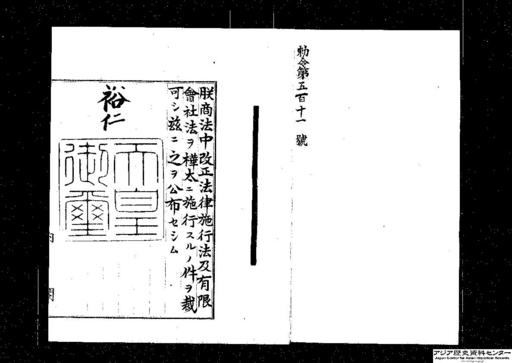 勅令第五百十一號
朕商法中改正法律施行法及有限
會社法ヲ樺太ニ施行スルノ件ヲ裁
可シ玆ニ之ヲ公布セシム
裕仁
天皇
御璽
内 閣
アジア歴史資料センター
Japan Center for Asian Historical Records